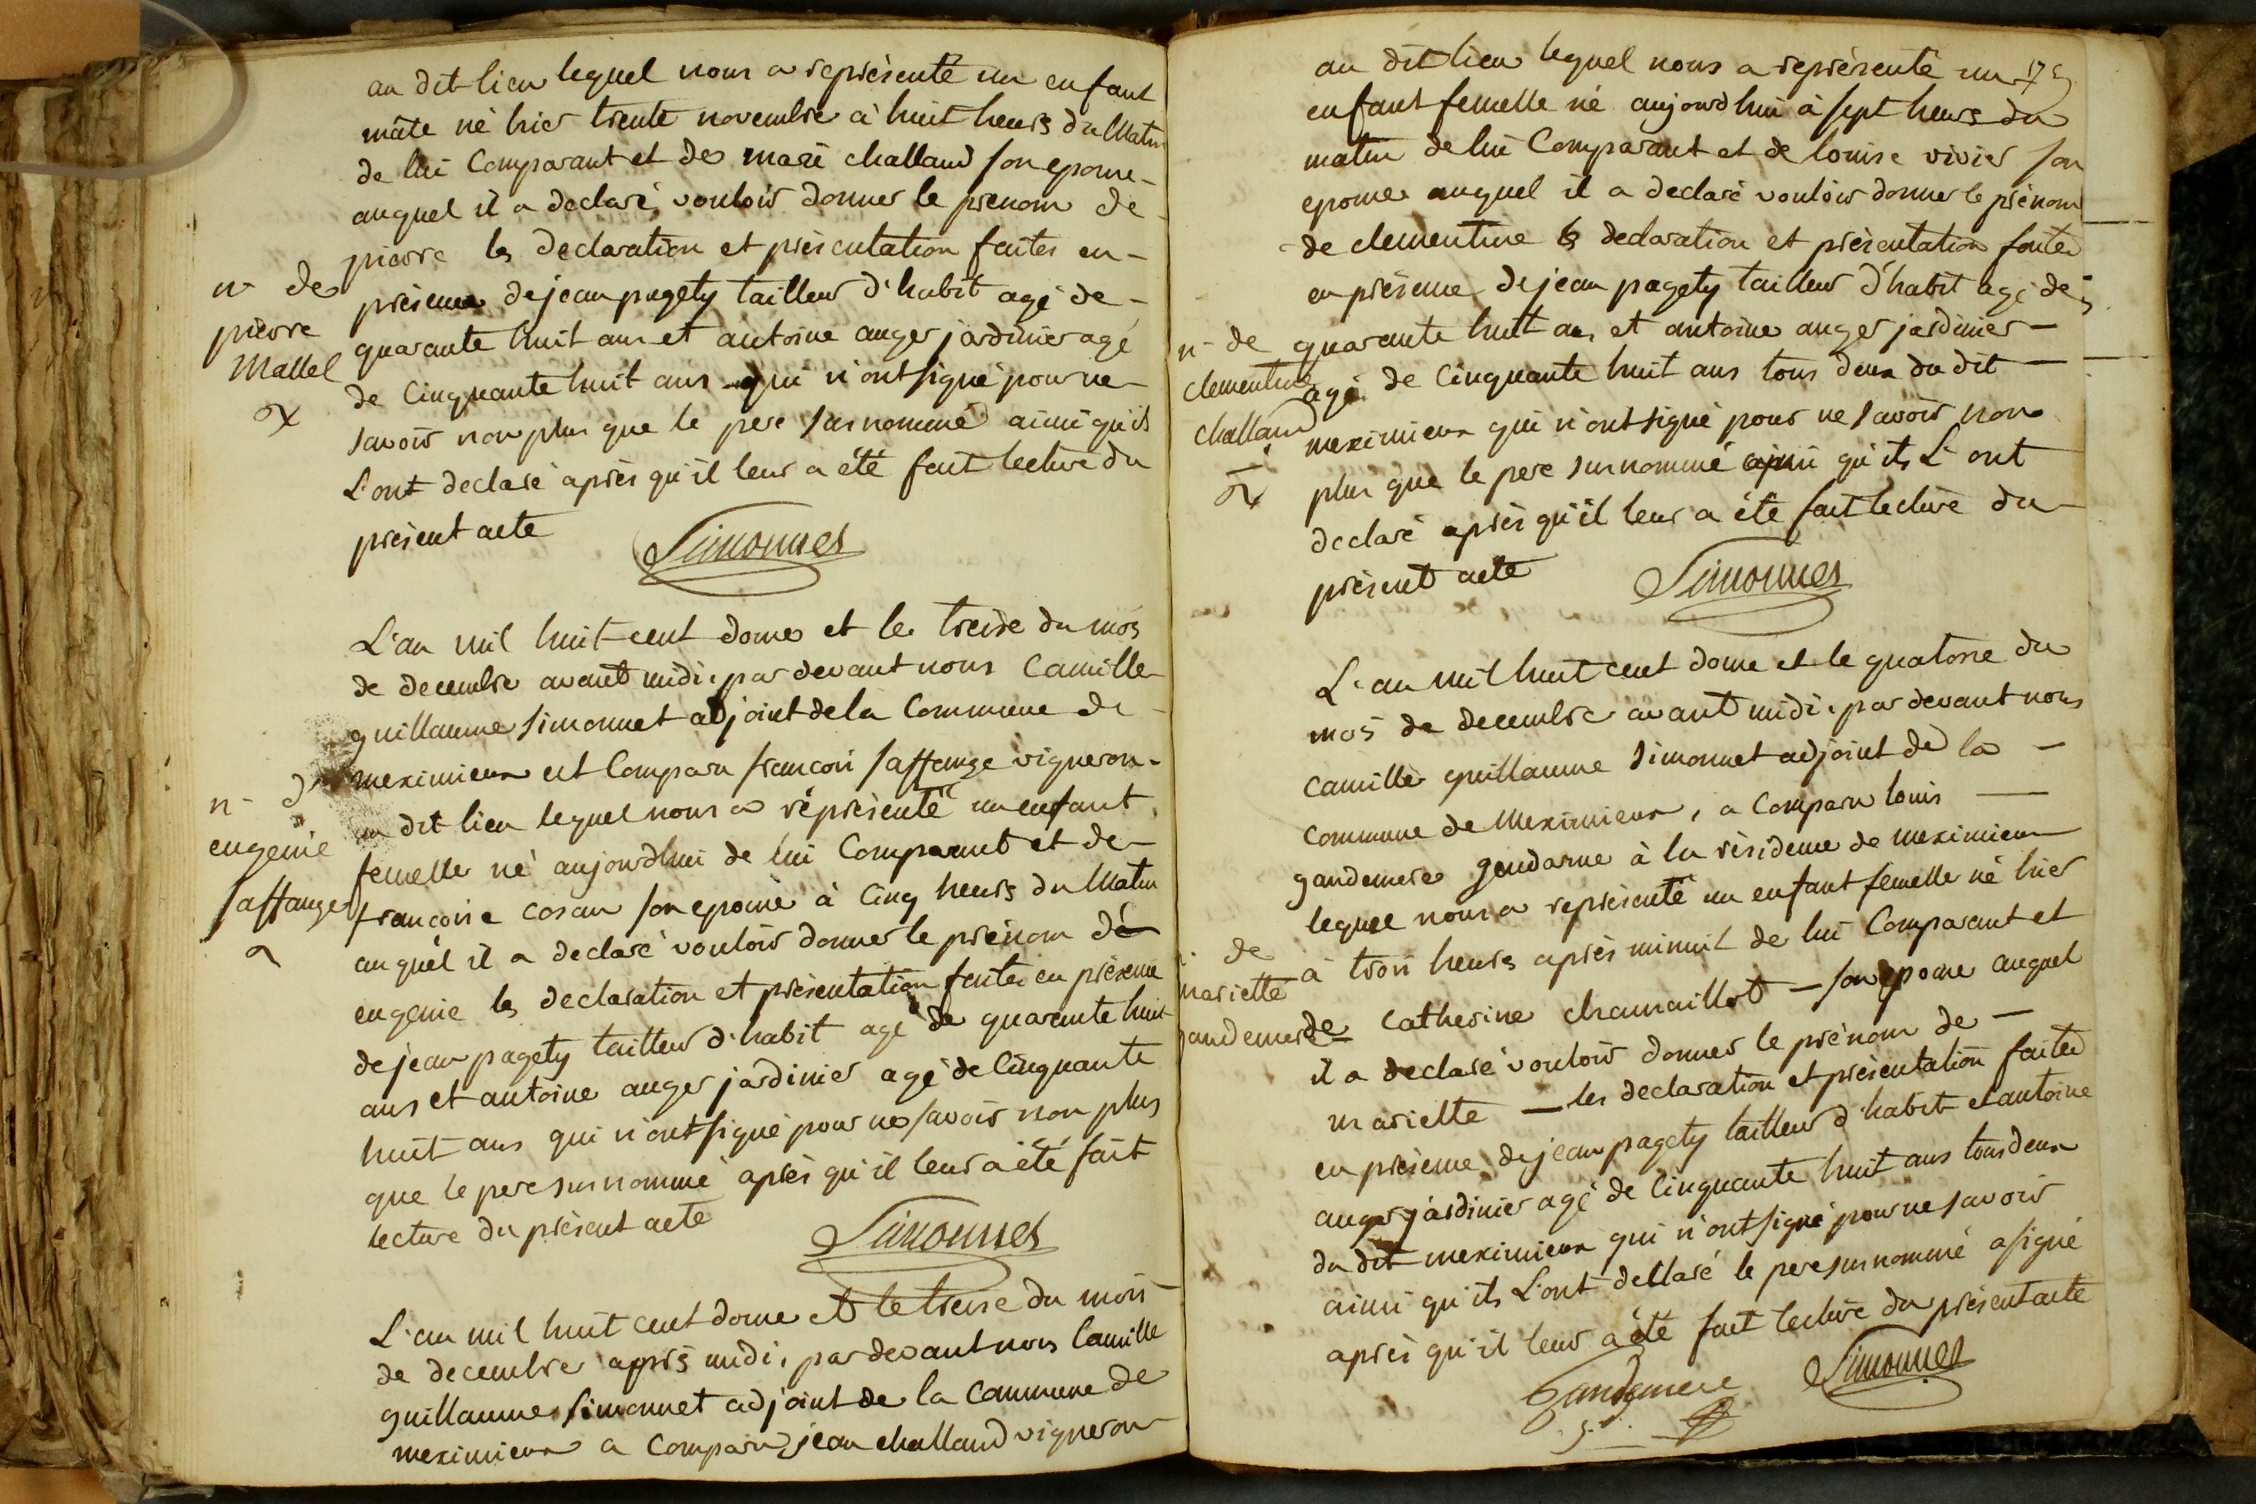 au dit lieu lequel nous a représenté un enfant
mâle né hier trente novembre à huit heurs du Matin
de lui Comparant et de marie challand son epouse
auquel il a declaré vouloir donner le prenom de
pierre les declaration et présentation faites en
présence de jean pagety tailleur d'habit agé de
quarante huit ans et antoine auger jardinier agé
de Cinquante huit ans qui n'ont signé pour ne
savoir non plus que le pere surnommé ainsi qu'ils
L'ont declaré après qu'il leur a été fait lecture du
présent acte
Simonnet
n de
pierre
Mallel
L'an mil huit cent douze et le treize du mois
de decembre avant midi, par devant nous Camille
guillaume simonnet adjoint de la Commune de
meximieux est Comparu francois saffange vigneron
au dit lieu lequel nous a réprésenté un enfant
femelle né aujourdhui de lui Comparant et de
francoise cosan son epouse à Cinq heurs du Matin
auquel il a declaré vouloir donner le prénom de
eugenie les declaration et présentation faites en présence
de jean pagety tailleur d'habit agé de quarante huit
ans et antoine auger jardinier agé de Cinquante
huit ans qui n'ont signé pour ne savoir non plus
que le pere surnommé après qu'il leur a été fait
lecture du présent acte
Simonnet
n d
eugenie
saffange
L'an mil huit cent douze et le treize du mois
de decembre après midi, par devant nous Camille
guillaume simonnet adjoint de la Commune de
meximieux a Comparu jean challand vigneron
au dit lieu lequel nous a représenté un
enfant femelle né aujourdhui à sept heurs du
matin de lui Comparant et de louise vivier son
epouse auquel il a declaré vouloir donner le prénom
de clementine les declaration et présentation faites
en présence de jean pagety tailleur d'habit agé de
quarante huit ans et antoine auger jardinier
agé de Cinquante huit ans tous deux du dit
meximieux qui n'ont signé pour ne savoir non
plus que le pere surnommé ainsi qu'ils L'ont
declaré après qu'il leur a été fait lecture du
présent acte
Simonnet
n de
clementine
challand
L'an mil huit cent douze et le quatorze du
mois de decembre avant midi, par devant nous
Camille guillaume simonnet adjoint de la
Commune de Meximieux, a Comparu louis
gandemere gendarme à la résidence de meximieux
lequel nous a représenté un enfant femelle né hier
à trois heurs après minuit de lui Comparant et
de Catherine chamaillot son epouse auquel
il a declaré vouloir donner le prénom de
mariette les declaration et présentation faites
en présence de jean pagety tailleur d'habit et antoine
auger jardinier agé de Cinquante huit ans tous deux
du dit meximieux qui n'ont signé pour ne savoir
ainsi qu'ils L'ont declaré le pere surnommé a signé
après qu'il leur a été fait lecture du présent acte
Gandemere
Simonnet
de
mariette
gandemere